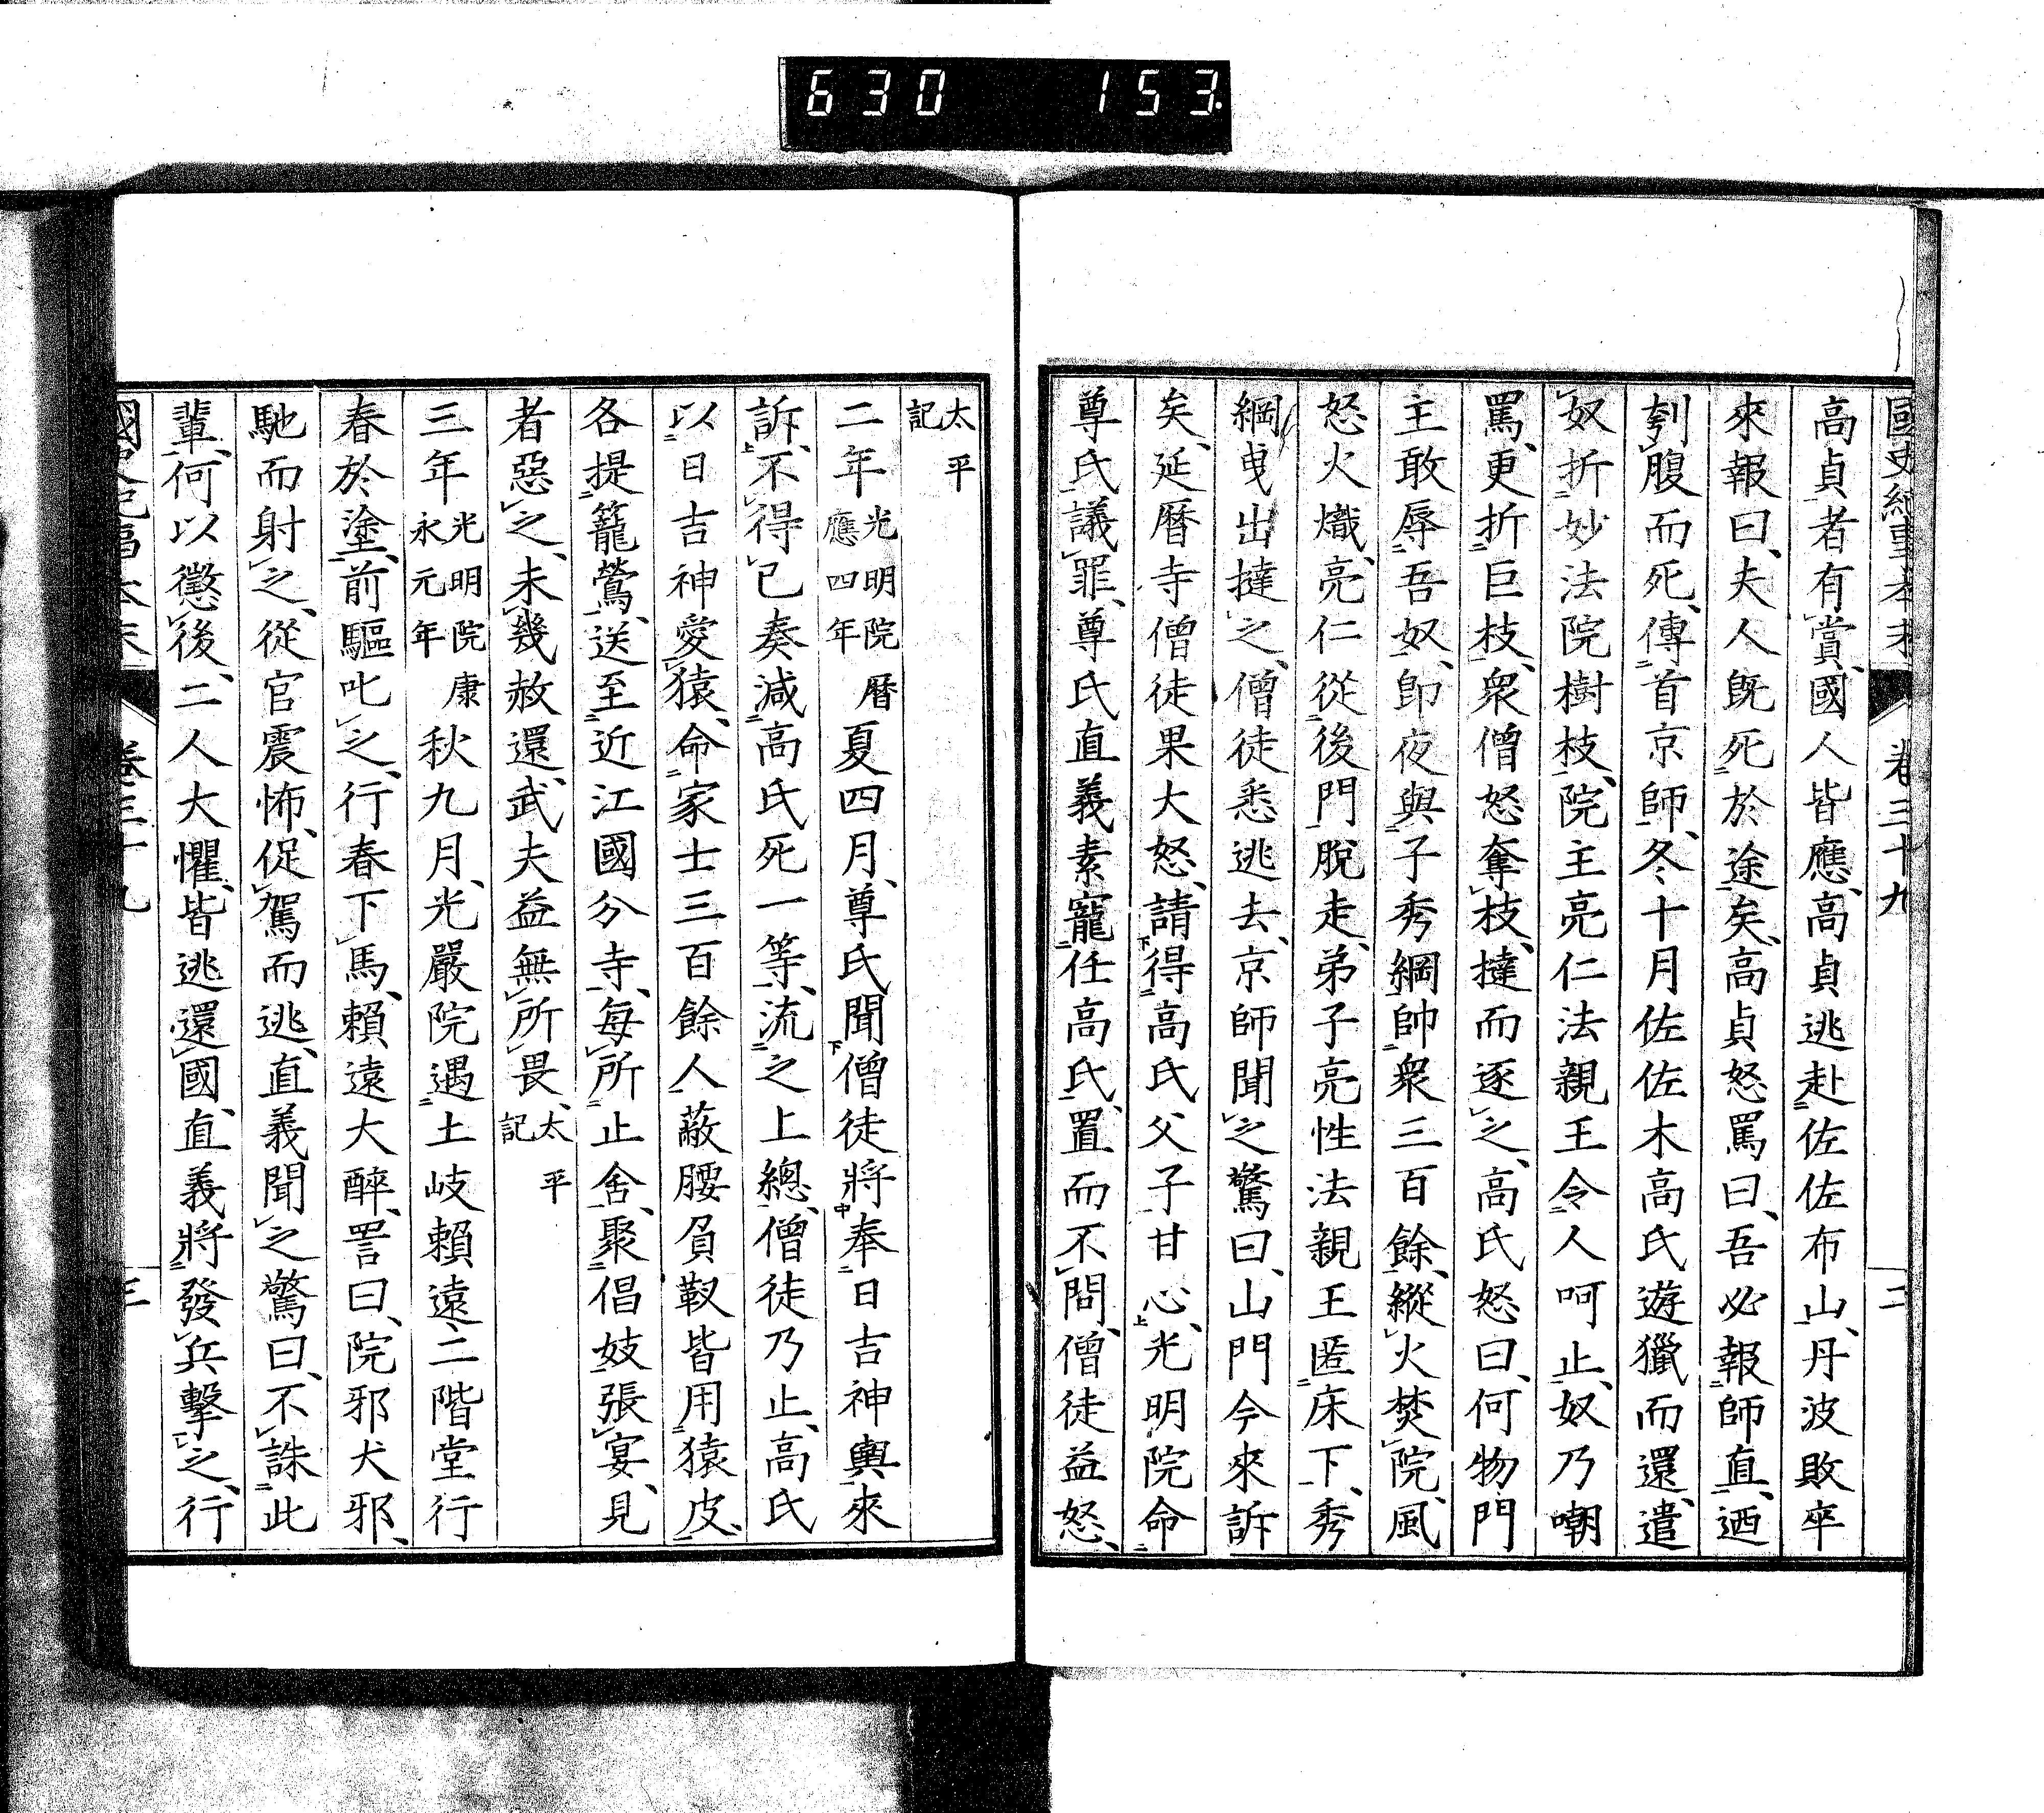 630 153.
國史紀事本末 卷三十九 二
高貞者有賞、國人皆應、高貞逃赴佐佐布山、丹波敗卒
來報曰、夫人既死於途矣、高貞怒罵曰、吾必報師直、迺
刳腹而死、傳首京師、冬十月佐佐木高氏遊獵而還、遣
奴折妙法院樹枝、院主亮仁法親王令人呵止、奴乃嘲
罵、更折巨枝、衆僧怒奪枝、撻而逐之、高氏怒曰、何物門
主敢辱吾奴、卽夜與子秀綱帥衆三百餘、縱火焚院、風
怒火熾、亮仁從後門脫走、弟子亮性法親王匿床下、秀
綱曳出撻之、僧徒悉逃去、京師聞之驚曰、山門今來訴
矣、延曆寺僧徒果大怒、請得高氏父子甘心、光明院命
尊氏議罪、尊氏直義素寵任高氏、置而不問、僧徒益怒、
太平記
二年光明院曆應四年夏四月、尊氏聞僧徒將奉日吉神輿來
訴、不得已奏減高氏死一等、流之上總、僧徒乃止、高氏
以日吉神愛猿、命家士三百餘人蔽腰負靫皆用猿皮、
各提籠鶯、送至近江國分寺、每所止舍、聚倡妓張宴、見
者惡之、未幾赦還、武夫益無所畏、太平記
三年光明院康永元年秋九月、光嚴院遇土岐賴遠二階堂行
春於塗、前驅叱之、行春下馬、賴遠大醉、詈曰、院邪犬邪、
馳而射之、從官震怖、促駕而逃、直義聞之驚曰、不誅此
輩、何以懲後、二人大懼、皆逃還國、直義將發兵擊之、行
國史紀事本末 卷三十九 三